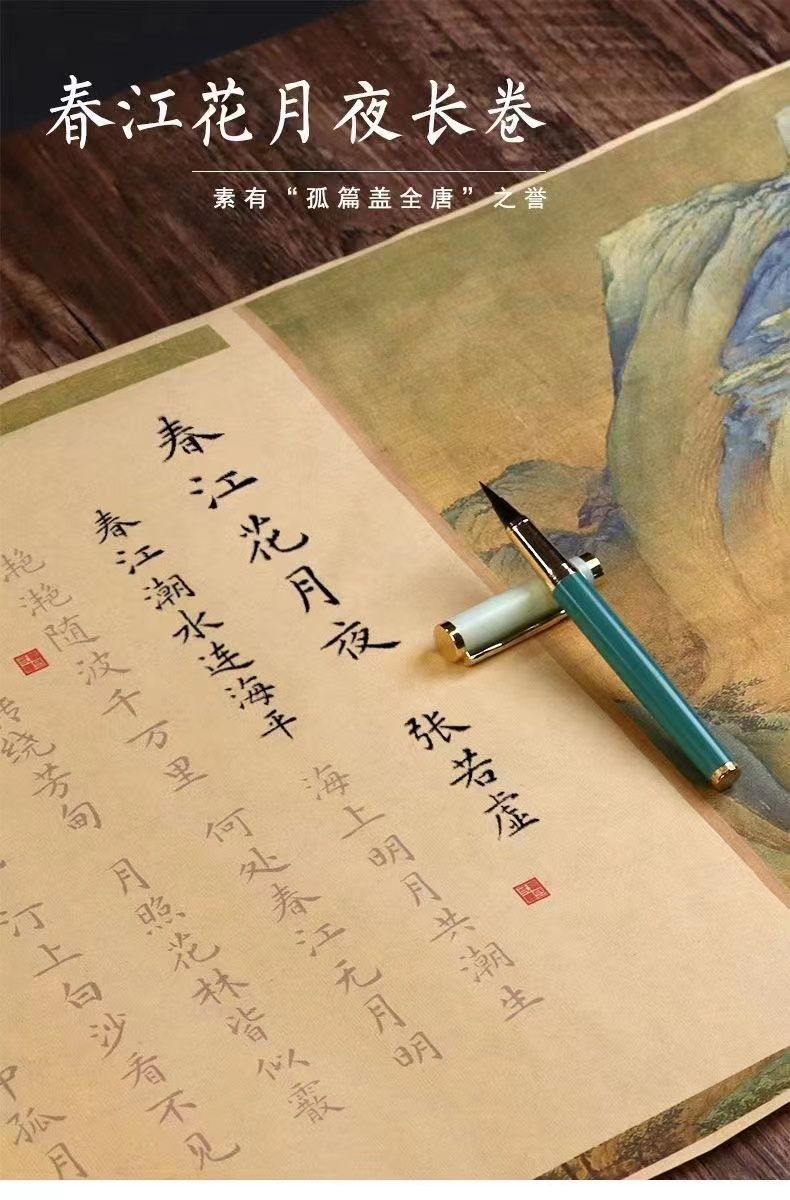 春江花月夜长卷
素有“孤篇盖全唐”之誉
春江花月夜 张若虚
春江潮水连海平 海上明月共潮生
滟滟随波千万里 何处春江无月明
转绕芳甸 月照花林皆似霰
汀上白沙看不见
中孤月